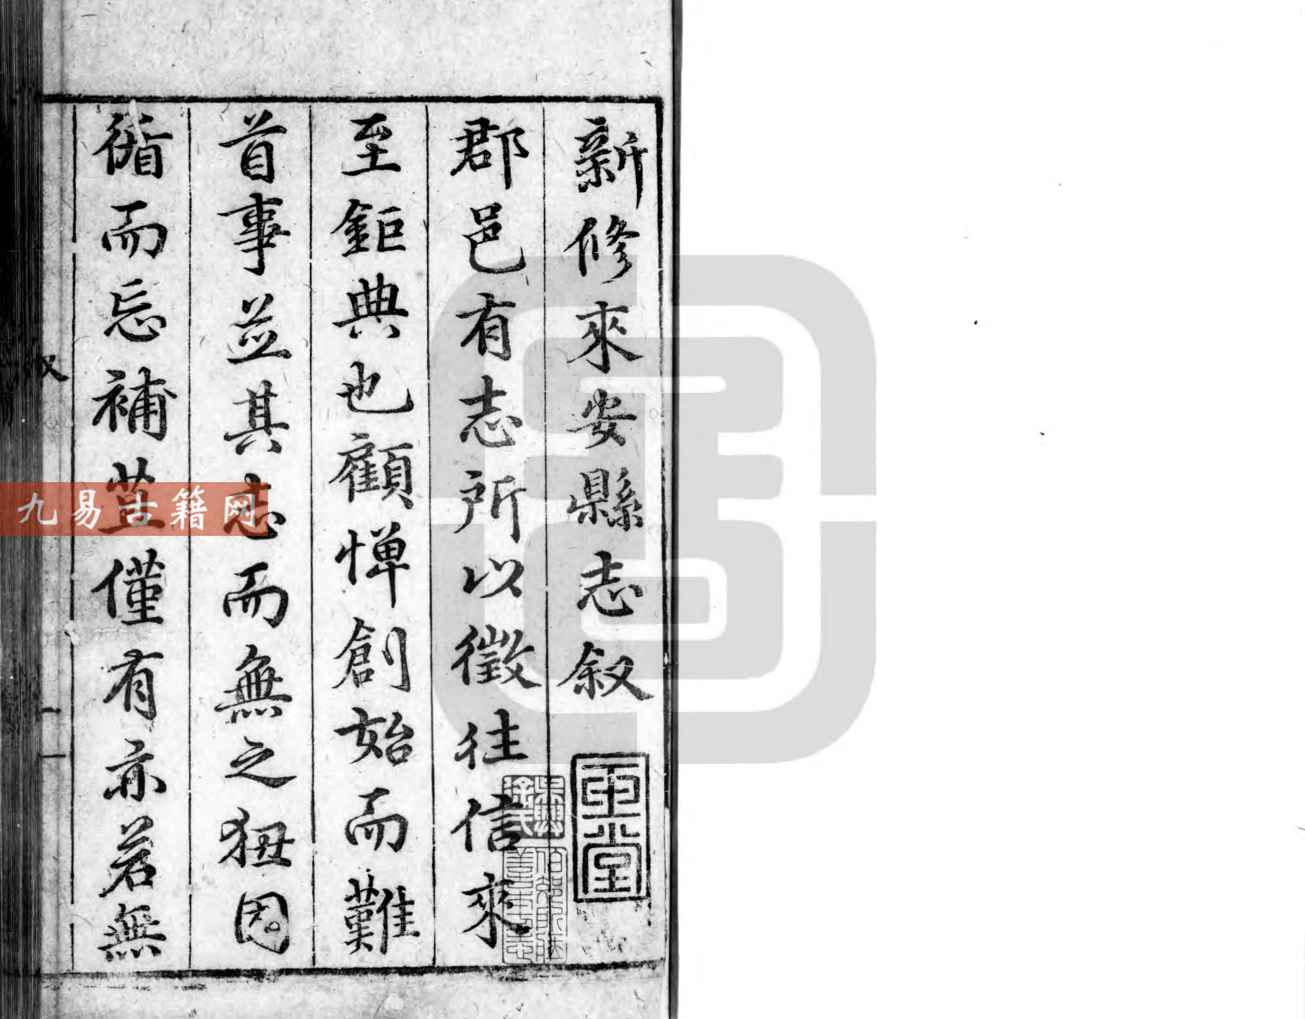 新修來安縣志叙
郡邑有志所以徵往信來
至鉅典也顧憚創始而難
首事並其志而無之狃因
循而忘補葺僅有亦若無
九易古籍网